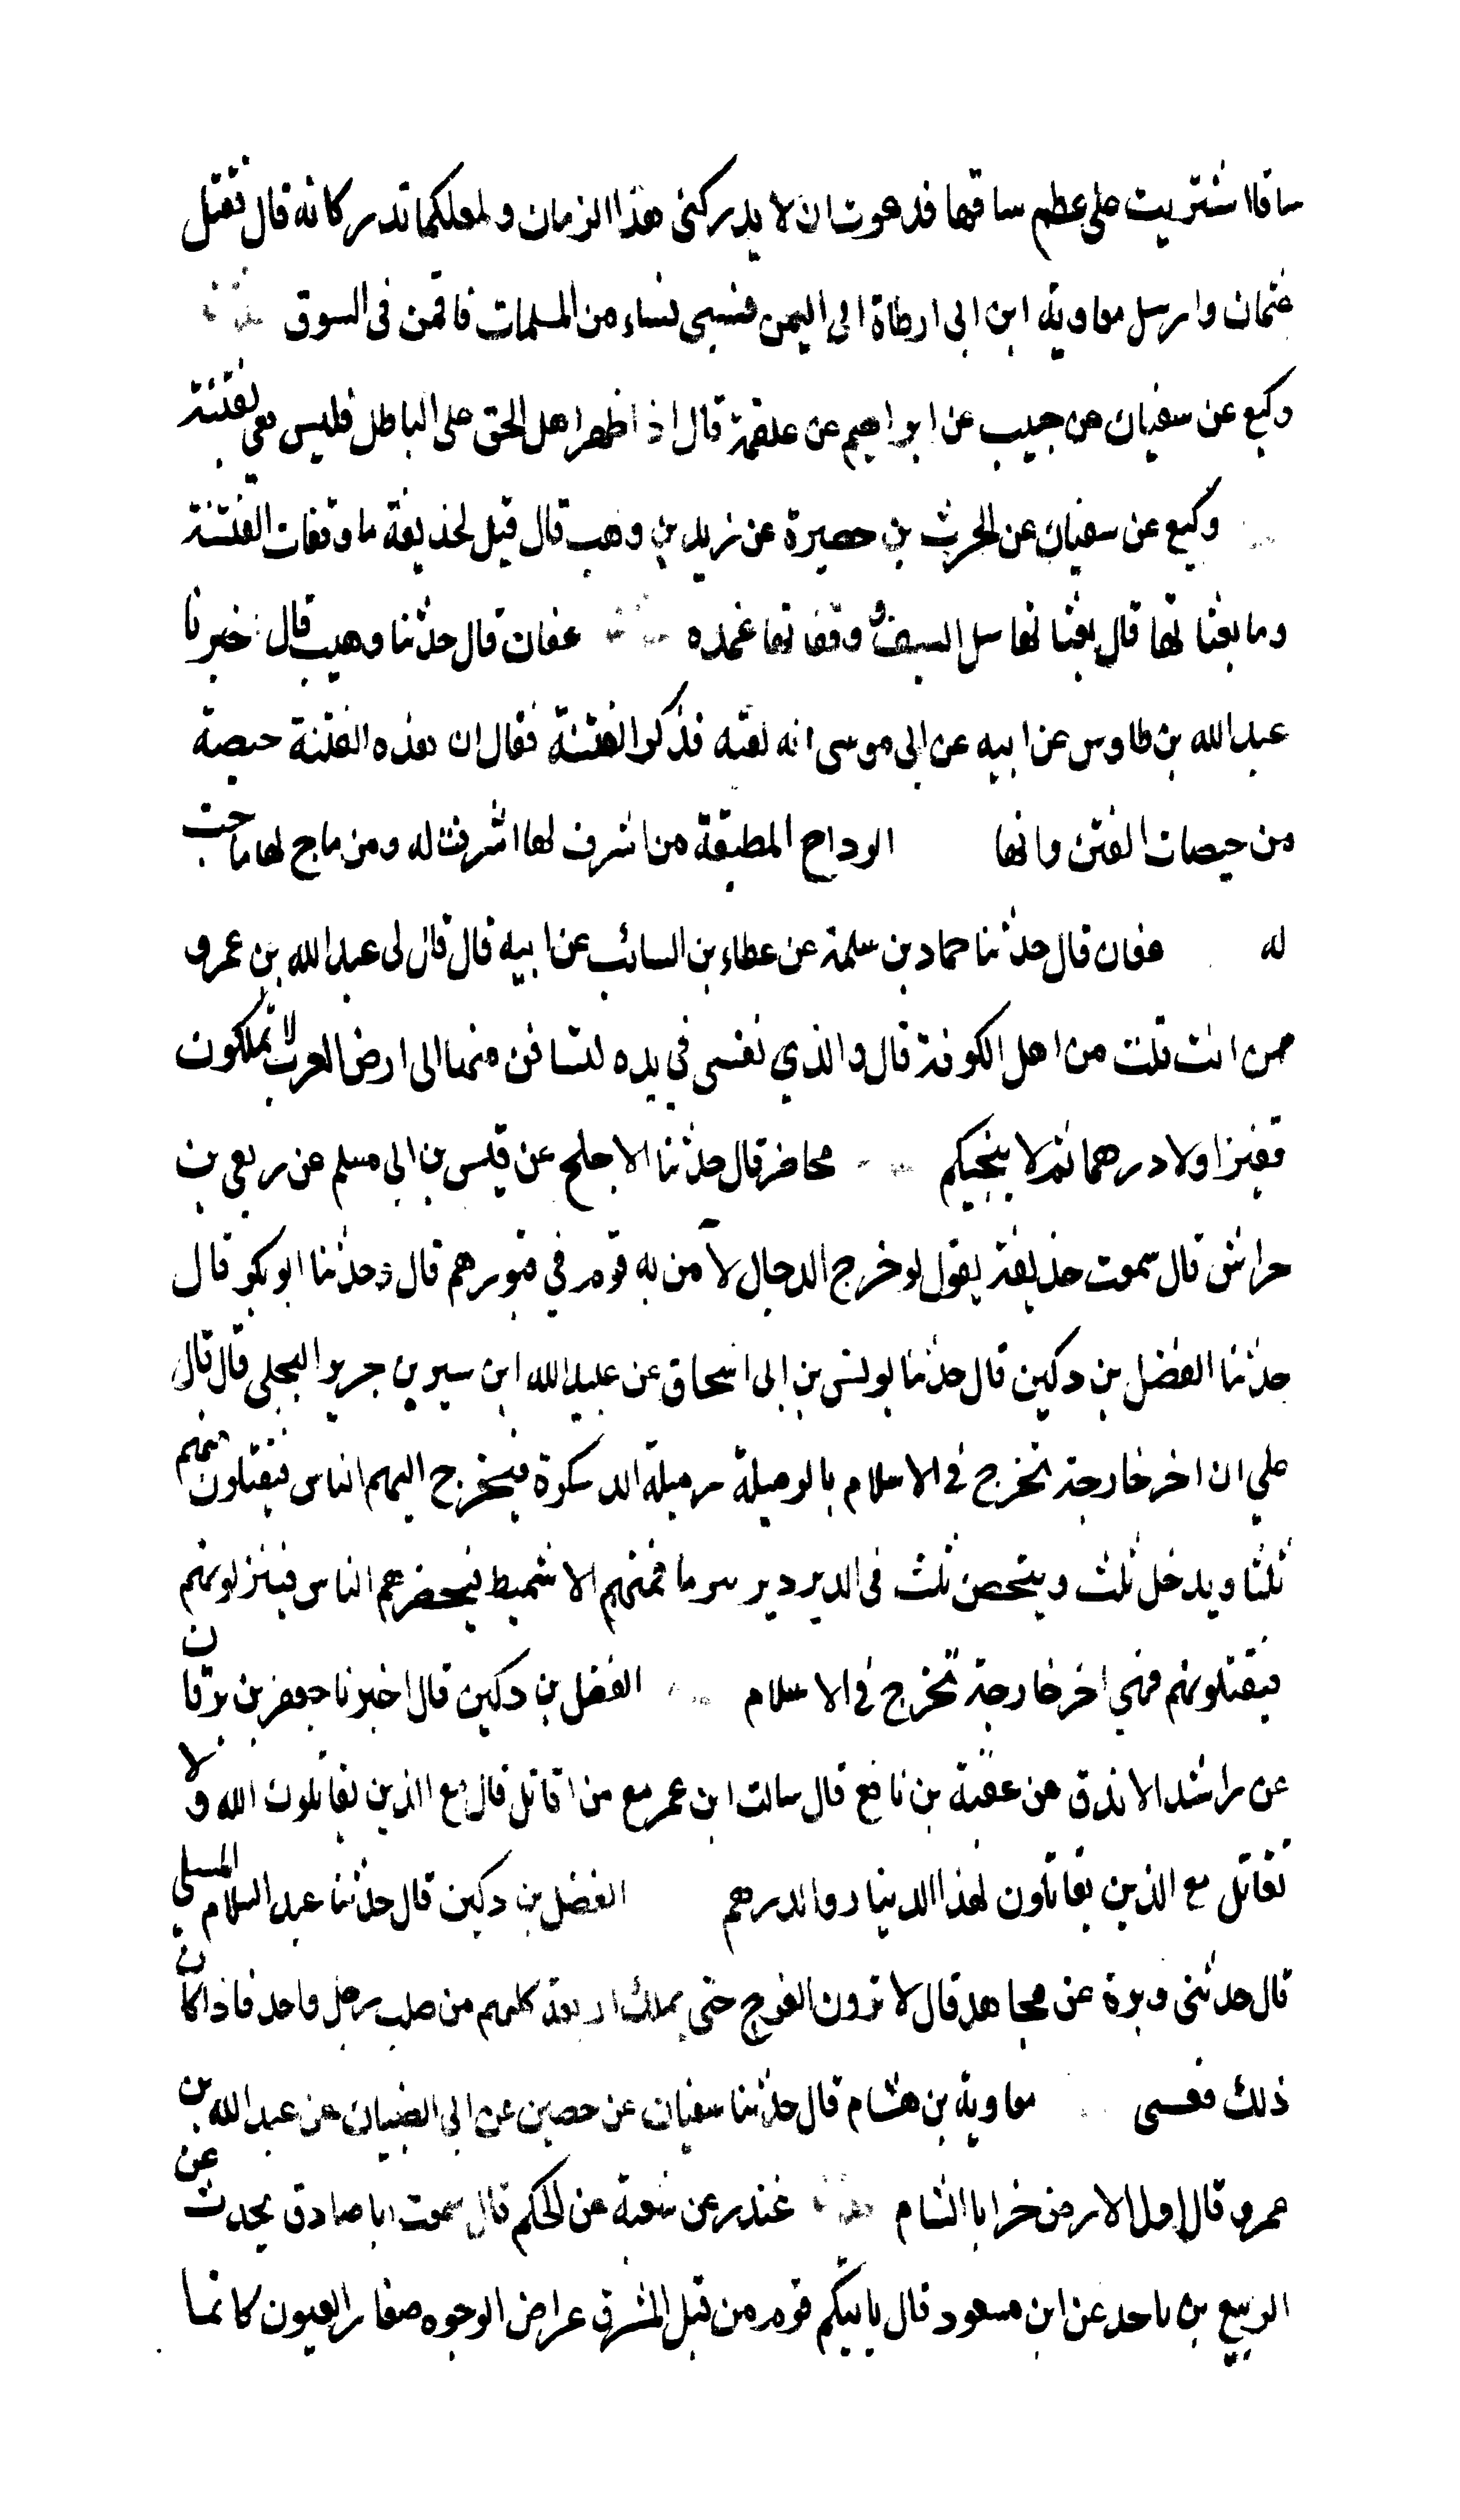 ساقا اشتريت على عظم ساقها فدعوت ان لا يدركنى هذا الزمان ولعلكما تدركانه قال فقتل
عثمان وارسل معاوية ابن ابى ارطاة الى اليمن فسبى نساء من المسلمات فاقمن فى السوق
وكيع عن سفيان عن حبيب عن ابراهيم عن علقمة قال اذا ظهر اهل الحق على الباطل فليس هى بفتنة
وكيع عن سفيان عن الحرث بن حصيرة عن زيد بن وهب قال قيل لحذيفة ما وقفات الفتنة
وما بعثاتها قال بعثاتها سل السيف ووقفاتها غمده عفان قال حدثنا وهيب قال اخبرنا
عبد الله بن طاوس عن ابيه عن ابى موسى انه لقيه فذكر الفتنة فقال ان هذه الفتنة حيصة
من حيصات الفتن وانها الرداح المطبقة من اشرف لها اشرفت له ومن ماج لها ماجت
له عفان قال حدثنا حماد بن سلمة عن عطاء بن السائب عن ابيه قال قال لى عبد الله بن عمرو
ممن انت قلت من اهل الكوفة قال والذي نفسى في يده لتسافن منها الى ارض العرب لا تملكون
قفيزا ولا درهما ثم لا ينجيكم محاضر قال حدثنا الاجلح عن قيس بن ابي مسلم عن ربعي بن
حراش قال سمعت حذيفة يقول لو خرج الدجال لآمن به قوم في قبورهم قال وحدثنا ابو بكر قال
حدثنا الفضل بن دكين قال حدثنا يونس بن ابى اسحاق عن عبيد الله ابن سيرين جرير البجلي قال قال
علي ان اخر خارجة تخرج فى الاسلام بالرميلة رميلة الدسكرة فيخرج اليهم الناس فيقتلون منهم
ثلثا ويدخل ثلث ويتحصن ثلث فى الدير دير مرما فمنهم الاشمط فيحضرهم الناس فينزلونهم
فيقتلونهم فهي اخر خارجة تخرج فى الاسلام الفضل بن دكين قال اخبرنا جعفر بن برقان
عن راشد الازرق عن عقبة بن نافع قال سالت ابن عمر مع من اقاتل قال مع الذين يقاتلون الله ولا
تقاتل مع الذين يقاتلون لهذا الدينار والدرهم الفضل بن دكين قال حدثنا عبد السلام المسلي
قال حدثنى وبرة عن مجاهد قال لا ترون الفرج حتى يملك اربعة كلهم من صلب رجل واحد فاذا كان
ذلك فعسى معاوية بن هشام قال حدثنا سفيان عن حصين عن ابي الضبيان عن عبد الله بن
عمرو قال اول الارض خرابا الشام غندر عن شعبة عن الحكم قال سمعت ابا صادق يحدث عن
الربيع بن ناجد عن ابن مسعود قال ياتيكم قوم من قبل المشرق عراض الوجوه صغار العيون كانما